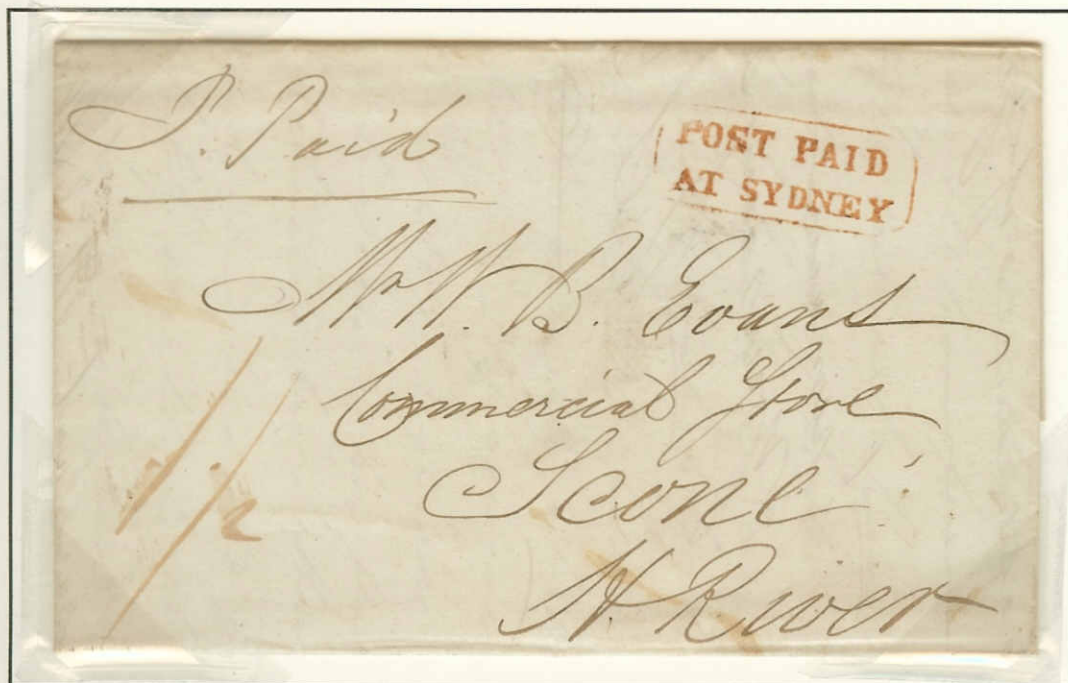 P. Paid
POST PAID
AT SYDNEY
Mr W. B. Evans
Commercial Store
Scone
H. River
1/2